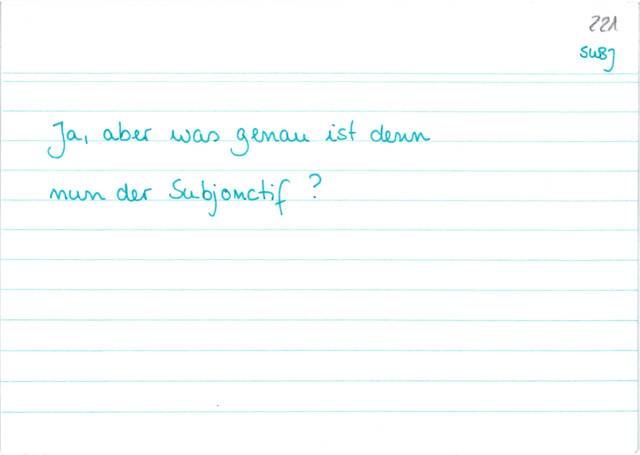 221
SUBJ
Ja, aber was genau ist denn
nun der Subjonctif ?